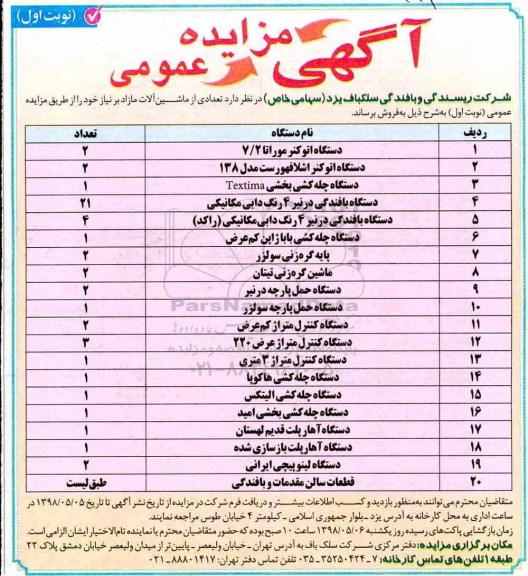 (نوبت اول)
آگهی مزایده عمومی
شرکت ریسندگی و بافندگی سلکباف یزد (سهامی خاص) در نظر دارد تعدادی از ماشین آلات مازاد بر نیاز خود را از طریق مزایده
عمومی (نوبت اول) به‌شرح ذیل به‌فروش برساند.
ردیف نام دستگاه تعداد
۱ دستگاه اتوکنر موراتا ۷/۲ ۲
۲ دستگاه اتوکنر اشلافهورست مدل ۱۳۸ ۲
۳ دستگاه چله کشی بخشی Textima ۱
۴ دستگاه بافندگی درنیر ۴ رنگ دابی مکانیکی ۲۱
۵ دستگاه بافندگی درنیر ۴ رنگ دابی مکانیکی (راکد) ۴
۶ دستگاه چله کشی بابا ژاپن کم عرض ۱
۷ پایه گره زنی سولزر ۲
۸ ماشین گره زنی تیتان ۲
۹ دستگاه حمل پارچه درنیر ۲
۱۰ دستگاه حمل پارچه سولزر ۱
۱۱ دستگاه کنترل متراژ کم عرض ۲
۱۲ دستگاه کنترل متراژ عرض ۲۲۰ ۳
۱۳ دستگاه کنترل متراژ ۳ متری ۱
۱۴ دستگاه چله کشی هاکوبا ۱
۱۵ دستگاه چله کشی الیتکس ۱
۱۶ دستگاه چله کشی بخشی امید ۱
۱۷ دستگاه آهار پلت قدیم لهستان ۱
۱۸ دستگاه آهار پلت بازسازی شده ۱
۱۹ دستگاه لینوپیچی ایرانی ۲
۲۰ قطعات سالن مقدمات و بافندگی طبق لیست
متقاضیان محترم می‌توانند به‌منظور بازدید و کسب اطلاعات بیشتر و دریافت فرم شرکت در مزایده از تاریخ نشر آگهی تا تاریخ ۱۳۹۸/۰۵/۰۵ در
ساعت اداری به محل کارخانه به آدرس یزد ـ بلوار جمهوری اسلامی ـ کیلومتر ۴ خیابان طوس مراجعه نمایند.
زمان بازگشایی پاکت‌های رسیده روز یکشنبه ۱۳۹۸/۰۵/۰۶ ساعت ۱۰ صبح بوده که حضور متقاضیان محترم یا نماینده تام الاختیار ایشان الزامی است.
مکان برگزاری مزایده: دفتر مرکزی شرکت سلک باف به آدرس تهران ـ خیابان ولیعصر ـ پایین‌تر از میدان ولیعصر خیابان دمشق پلاک ۲۳
طبقه ۱ تلفن‌های تماس کارخانه: ۷ـ۳۵۲۵۰۴۲۴ـ۰۳۵ تلفن تماس دفتر تهران: ۸۸۸۰۱۴۱۷ـ۰۲۱